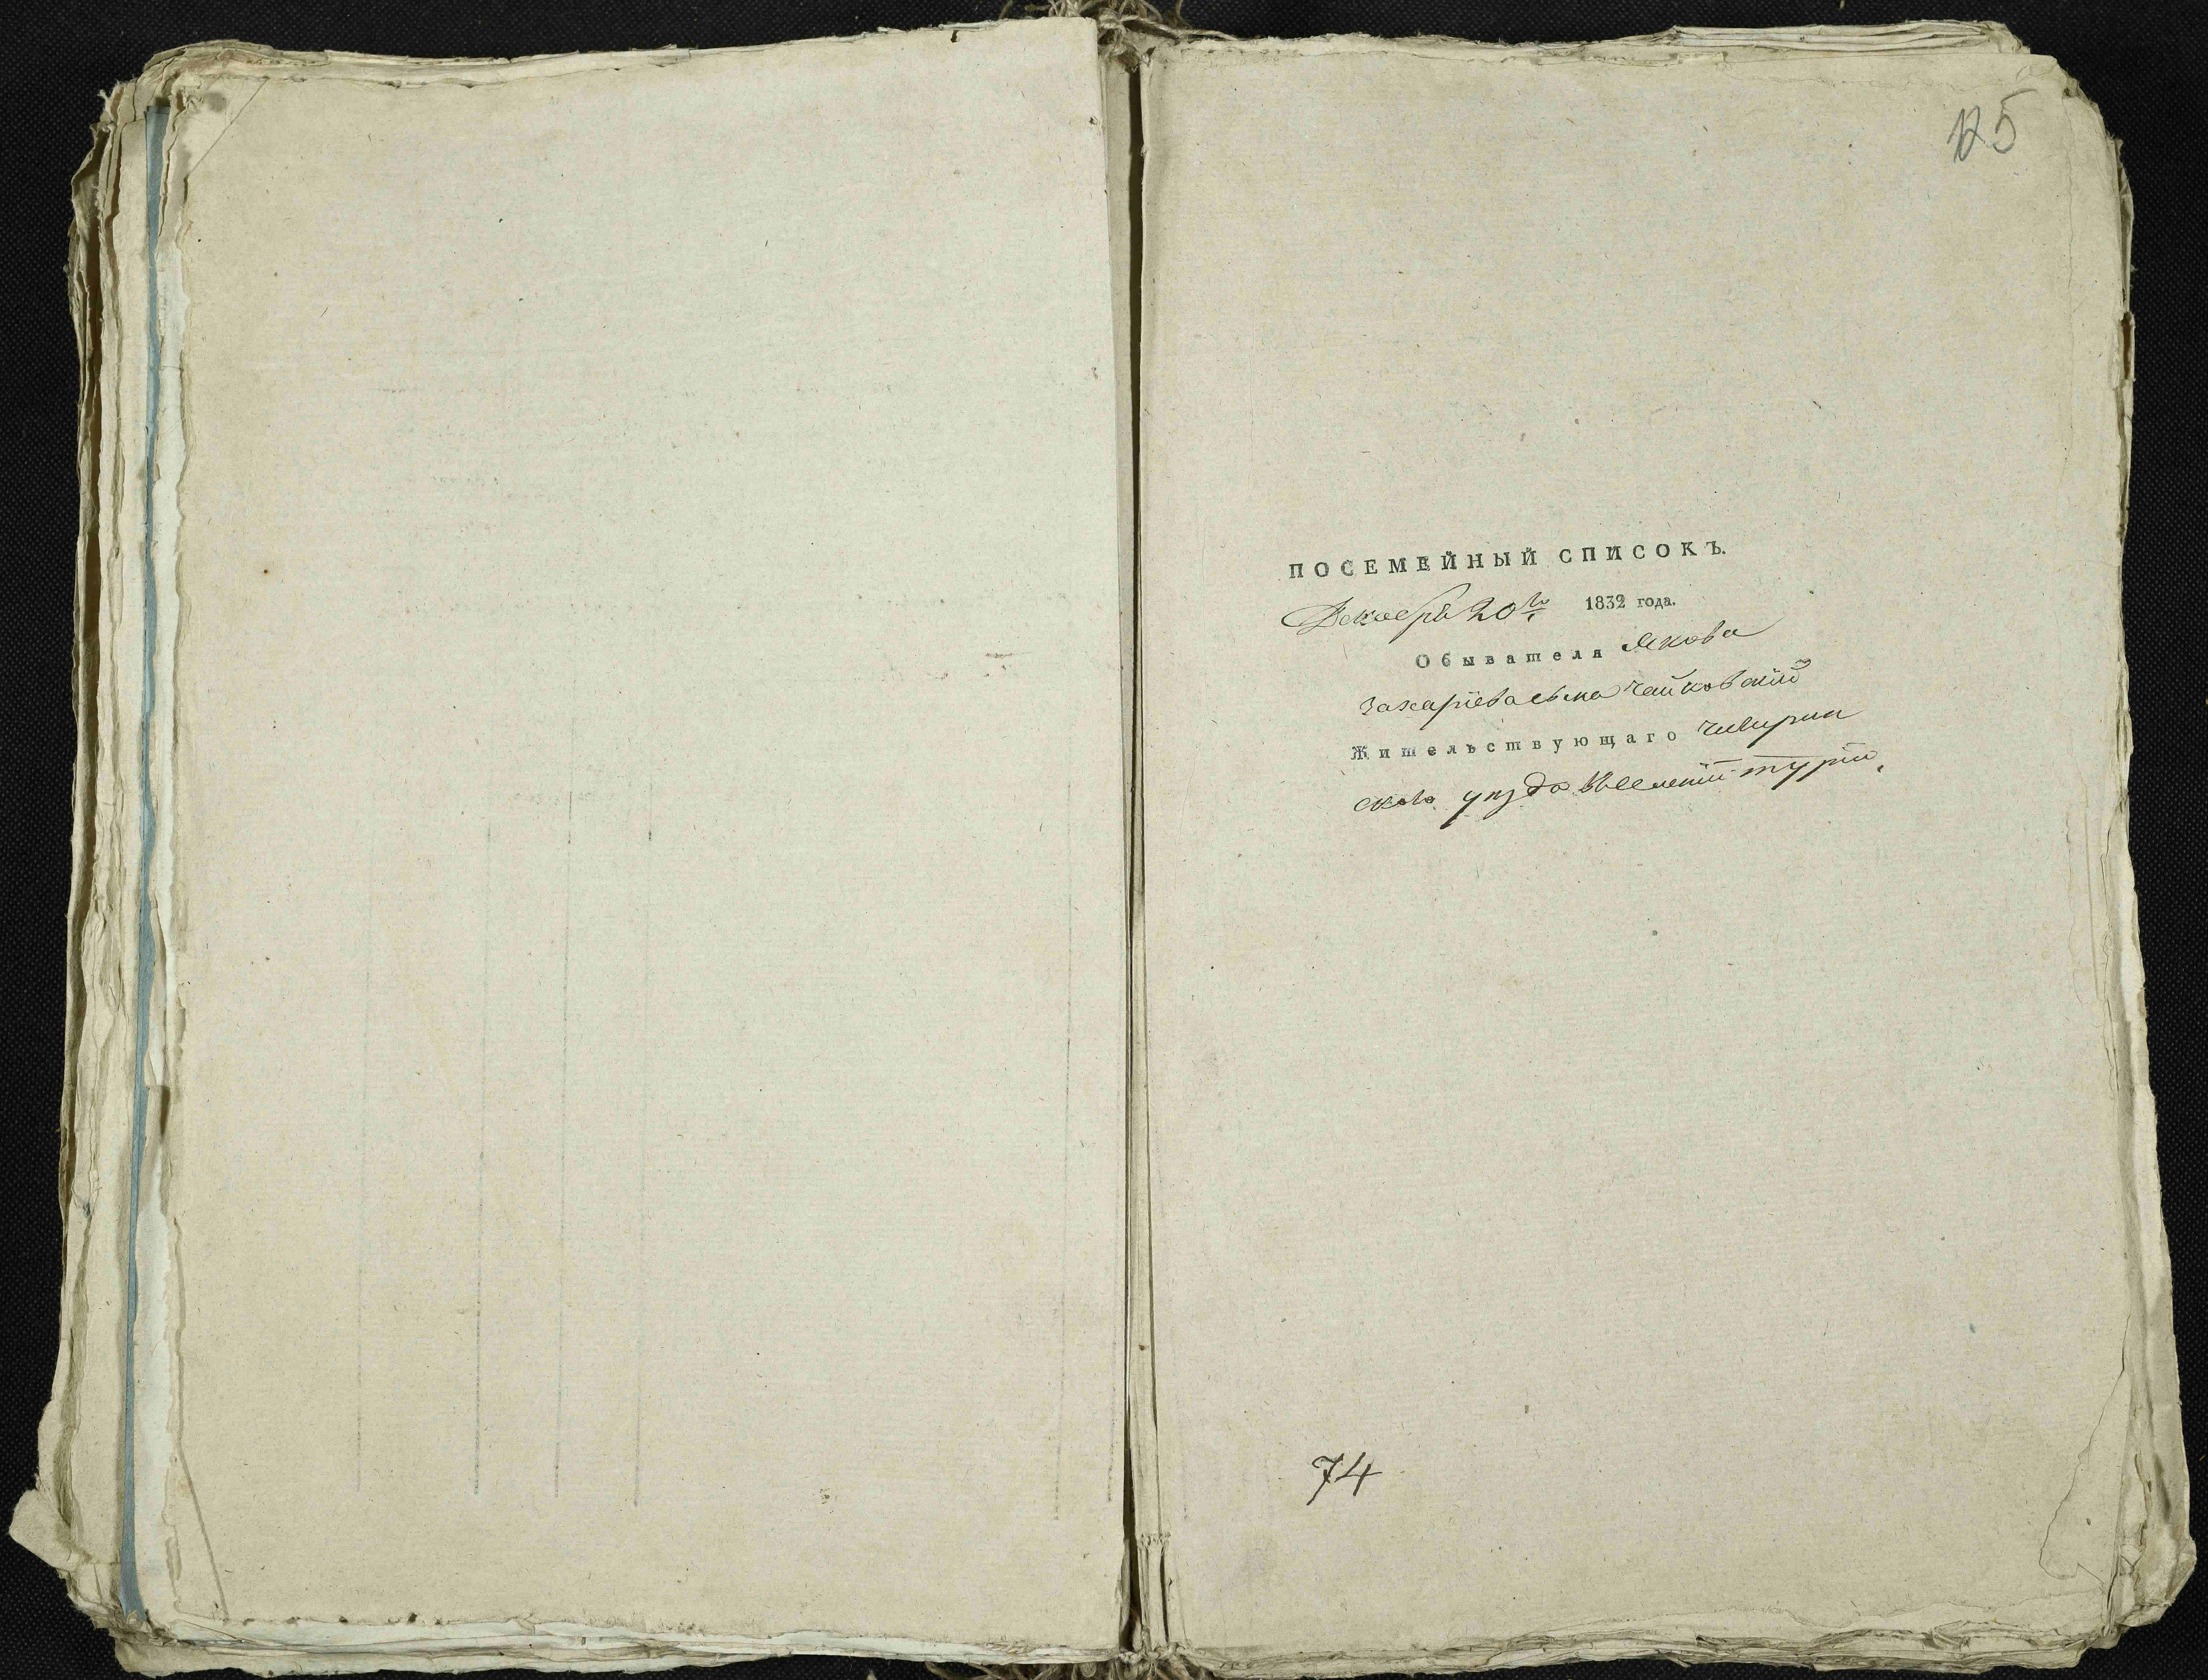 125
ПОСЕМЕЙНЫЙ СПИСОКЪ.
Декабря 20го 1832 года.
Обывателя Якова
Захаріева сына Чайковскій
Жительствующаго Чигирин
ского уезда Вселеніи Туріи
74